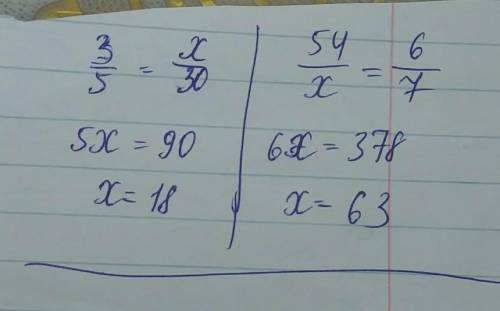 3/5 = x/30
5x = 90
x = 18
54/x = 6/7
6x = 378
x = 63